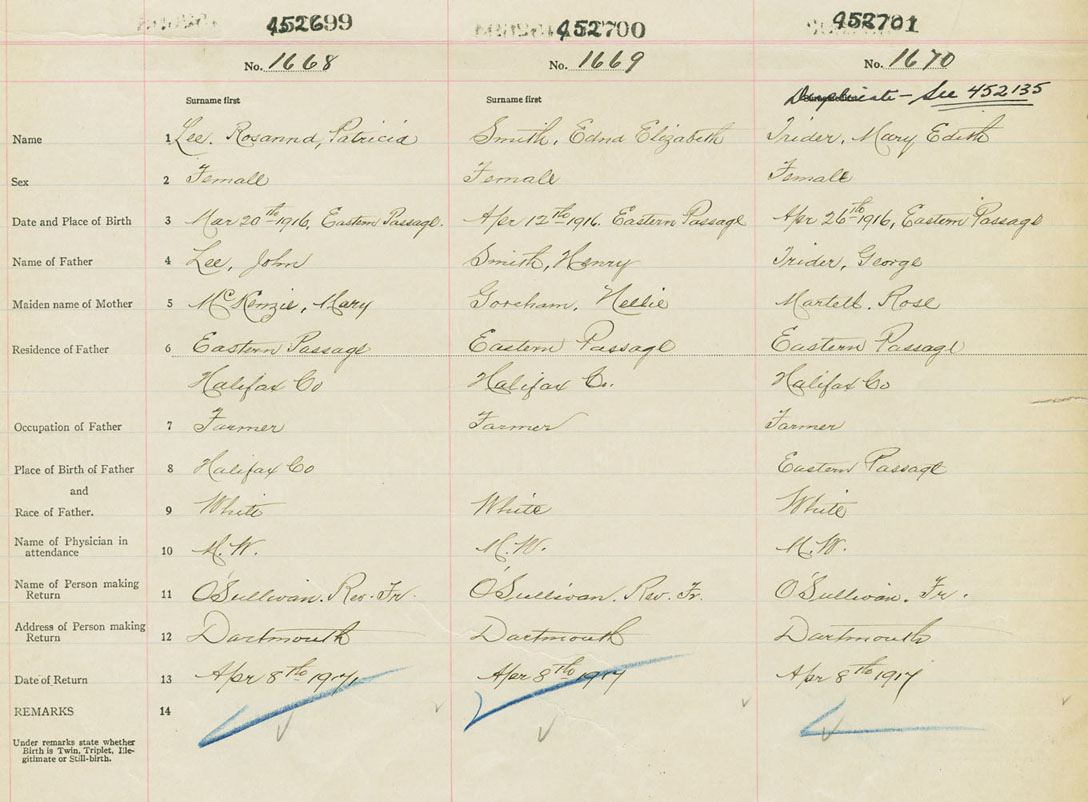 452699 452700 452701
No. 1668 No. 1669 No. 1670
Duplicate - See 452135
Surname first Surname first
Name 1 Lee, Rosanna, Patricia Smith, Edna Elizabeth Trider, Mary Edith
Sex 2 Female Female Female
Date and Place of Birth 3 Mar 20th 1916, Eastern Passage. Apr 12th 1916. Eastern Passage Apr 26th 1916, Eastern Passage
Name of Father 4 Lee, John Smith, Henry Trider, George
Maiden name of Mother 5 McKenzie, Mary Goreham, Nellie Martell, Rose
Residence of Father 6 Eastern Passage Eastern Passage Eastern Passage
Halifax Co Halifax Co. Halifax Co
Occupation of Father 7 Farmer Farmer Farmer
Place of Birth of Father 8 Halifax Co Eastern Passage
and
Race of Father. 9 White White White
Name of Physician in
attendance 10 M.W. M.W. M.W.
Name of Person making
Return 11 O'Sullivan. Rev. Fr. O'Sullivan. Rev. Fr. O'Sullivan. Fr.
Address of Person making
Return 12 Dartmouth Dartmouth Dartmouth
Date of Return 13 Apr 8th 1917 Apr 8th 1917 Apr 8th 1917
REMARKS 14
Under remarks state whether
Birth is Twin, Triplet, Ille-
gitimate or Still-birth.